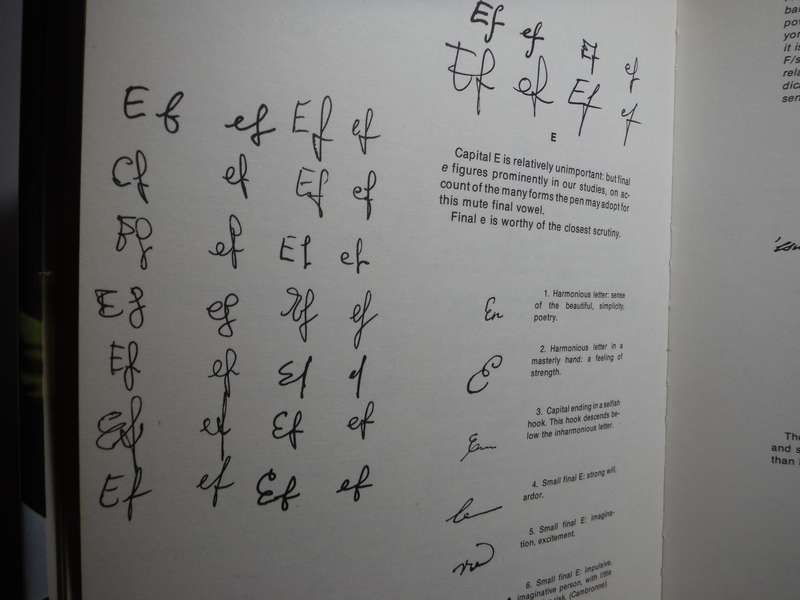 Ef ef Ef ef
Ef ef Ef ef
E
Capital E is relatively unimportant: but final
e figures prominently in our studies, on ac-
count of the many forms the pen may adopt for
this mute final vowel.
Final e is worthy of the closest scrutiny.
Ef ef Ef ef
Ef ef Ef ef
Ef ef Ef ef
Ef ef Ef ef
Ef ef Ef ef
Ef ef Ef ef
Ef ef Ef ef
En
1. Harmonious letter: sense
of the beautiful, simplicity,
poetry.
E
2. Harmonious letter in a
masterly hand: a feeling of
strength.
3. Capital ending in a selfish
hook. This hook descends be-
low the inharmonious letter.
4. Small final E: strong will,
ardor.
5. Small final E: imagina-
tion, excitement.
6. Small final E: impulsive,
imaginative person, with little
(Cambronne)
it is
F/s
rela
dica
sen
The
and s
than